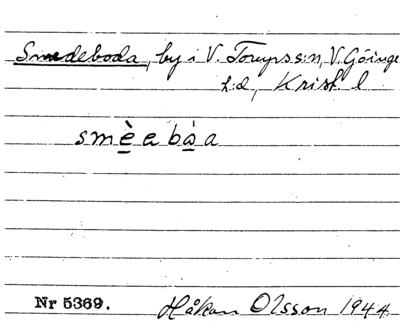 Smedeboda, by i V. Torups s:n, V. Göinge
h:d, Krist. l
smè̱e bà̱a
Nr 5369. Håkan Olsson 1944